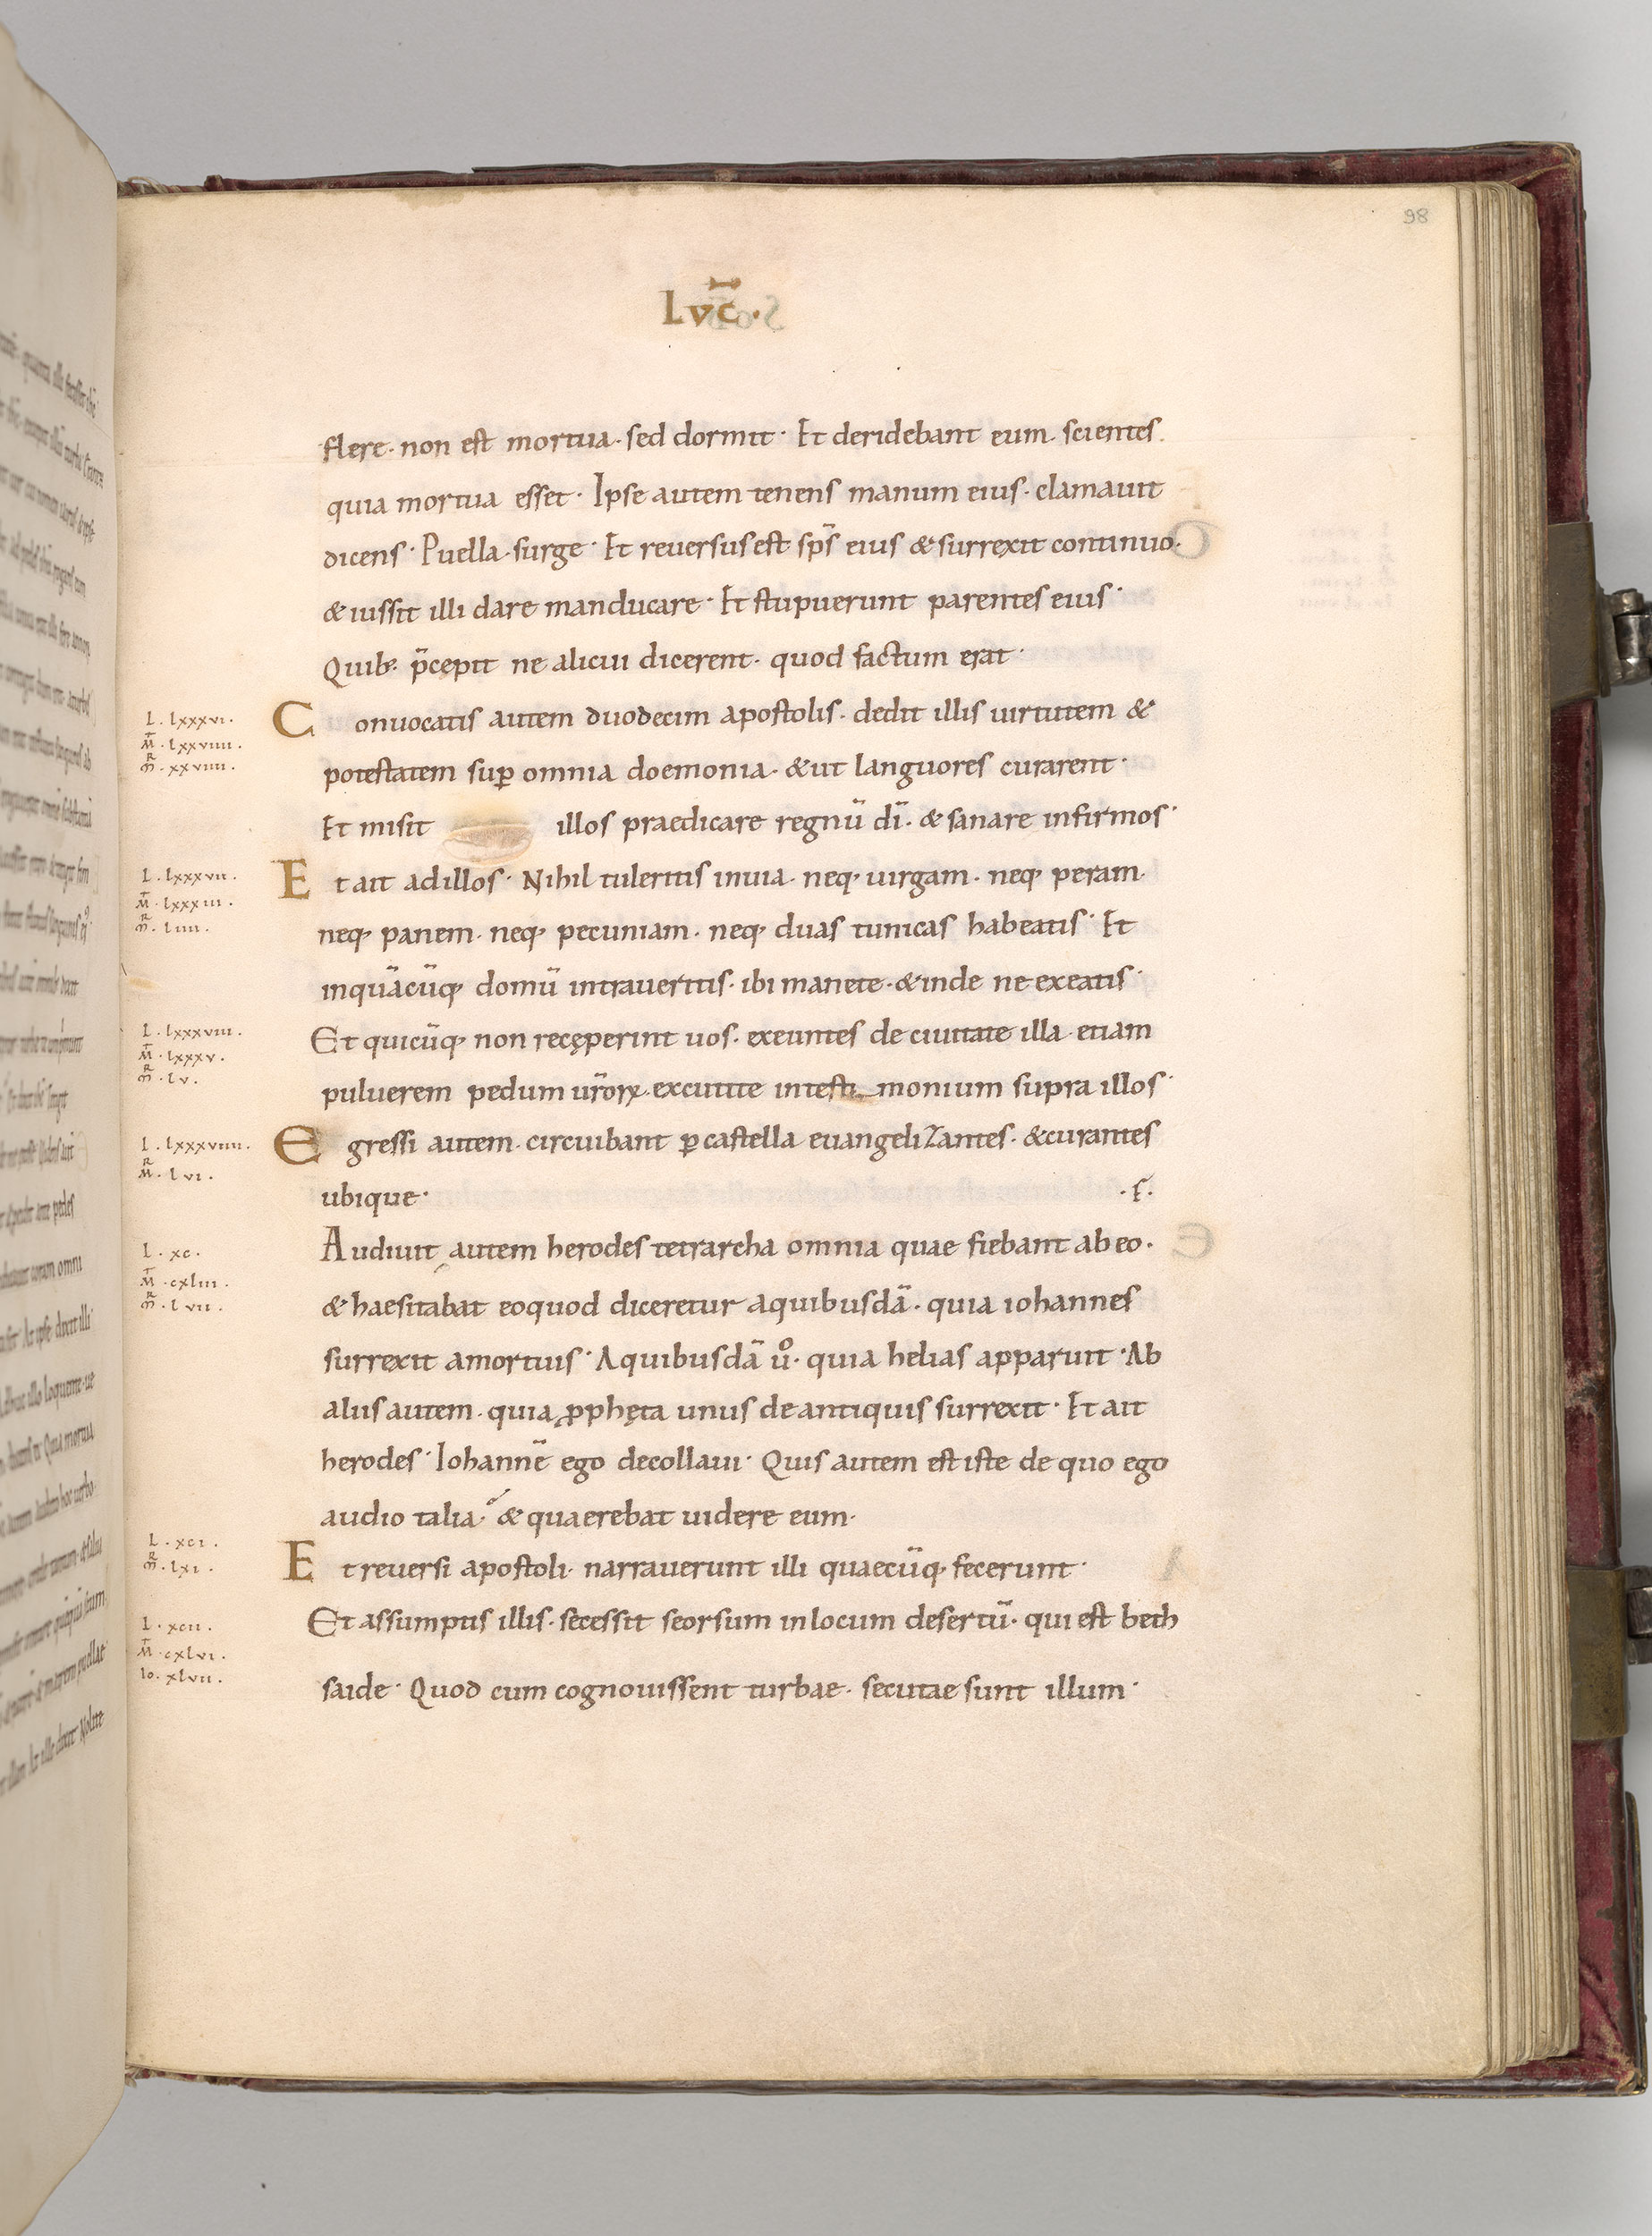 98
Lvc̄.
flere· non est mortua· sed dormit· Et deridebant eum· scientes
quia mortua esset· Ipse autem tenens manum eius· clamauit
dicens· Puella surge· Et reuersus est sp̄s eius & surrexit continuo·
& iussit illi dare manducare· Et stupuerunt parentes eius·
Quib; p̄cepit ne alicui dicerent· quod factum erat·
L· lxxxvi·
M̄· lxxviiii·
M̄R· xxviiii·
Conuocatis autem duodecim apostolis· dedit illis uirtutem &
potestatem sup̱ omnia doemonia· & ut languores curarent·
Et misit illos praedicare regnū dī· & sanare infirmos·
L· lxxxvii·
M̄· lxxxiii·
M̄R· liiii·
Et ait ad illos· Nihil tuleritis in uia· neq; uirgam· neq; peram·
neq; panem· neq; pecuniam· neq; duas tunicas habeatis· Et
in quācūq; domū intraueritis· ibi manete· & inde ne exeatis·
L· lxxxviii·
M̄· lxxxv·
M̄R· lv·
Et quicūq; non recęperint uos· exeuntes de ciuitate illa· etiam
puluerem pedum ur̄oꝝ excutite in testimonium supra illos·
L· lxxxviiii·
M̄R· lvi·
Egressi autem· circuibant ꝑ castella euangelizantes· & curantes
ubique· ·f·
L· xc·
M̄· cxliii·
M̄R· lvii·
Audiuit autem herodes tetrarcha omnia quae fiebant ab eo·
& haesitabat eo quod diceretur a quibusdā· quia iohannes
surrexit a mortuis· A quibusdā ůo· quia helias apparuit· Ab
aliis autem· quia ꝓphęta unus de antiquis surrexit· Et ait
herodes· Iohannē ego decollaui· Quis autem est iste de quo ego
audio talia· & quaerebat uidere eum·
L· xci·
M̄R· lxi·
Et reuersi apostoli· narrauerunt illi quaecūq; fecerunt·
L· xcii·
M̄· cxlvi·
Io· xlvii·
Et assumptis illis· secessit seorsum in locum desertū· qui est beth
saide· Quod cum cognouissent turbae· secutae sunt illum·